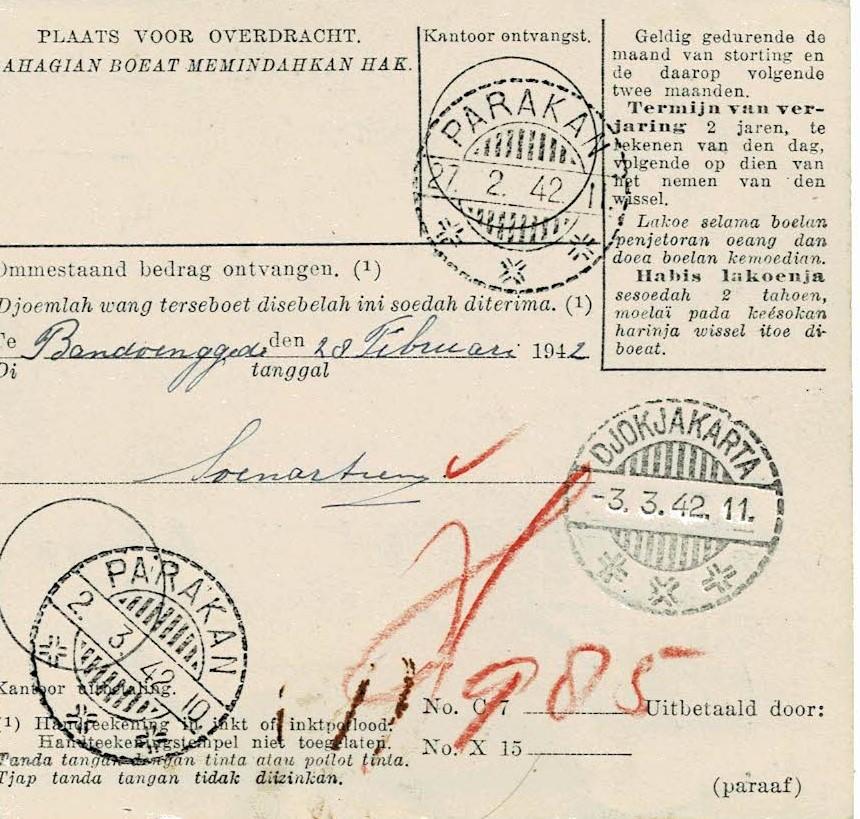 PLAATS VOOR OVERDRACHT.
AHAGIAN BOEAT MEMINDAHKAN HAK.
Kantoor ontvangst.
PARAKAN
27. 2. 42. 1
Geldig gedurende de
maand van storting en
de daarop volgende
twee maanden.
Termijn van ver-
jaring 2 jaren, te
rekenen van den dag,
volgende op dien van
het nemen van den
wissel.
Lakoe selama boelan
penjetoran oeang dan
doea boelan kemoedian.
Habis lakoenja
sesoedah 2 tahoen,
moelaï pada keésokan
harinja wissel itoe di-
boeat.
Ommestaand bedrag ontvangen. (1)
Djoemlah wang terseboet disebelah ini soedah diterima. (1)
Te Bandoenggede den 28 Februari 1942
Di tanggal
DJOKJAKARTA
-3. 3. 42. 11.
PARAKAN
2. 3. 42. 10
985
Kantoor uitbetaling.
(1) Handteekening in inkt of inktpotlood.
Handteekeningstempel niet toegelaten.
Tanda tangan dengan tinta atau potlot tinta.
Tjap tanda tangan tidak diizinkan.
No. C 7 Uitbetaald door:
No. X 15
(paraaf)